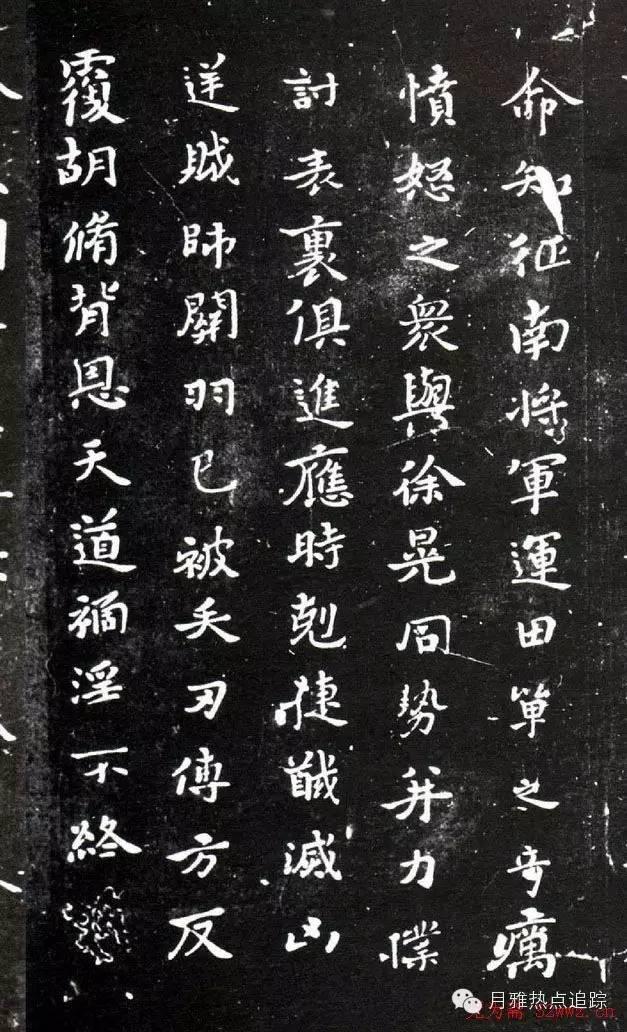 命知征南將軍運田單之奇厲
憤怒之衆與徐晃同勢并力撲
討表裏俱進應時剋捷馘滅凶
逆賊帥關羽已被矢刃傅方反
覆胡脩背恩天道禍淫不終
月雅热点追踪